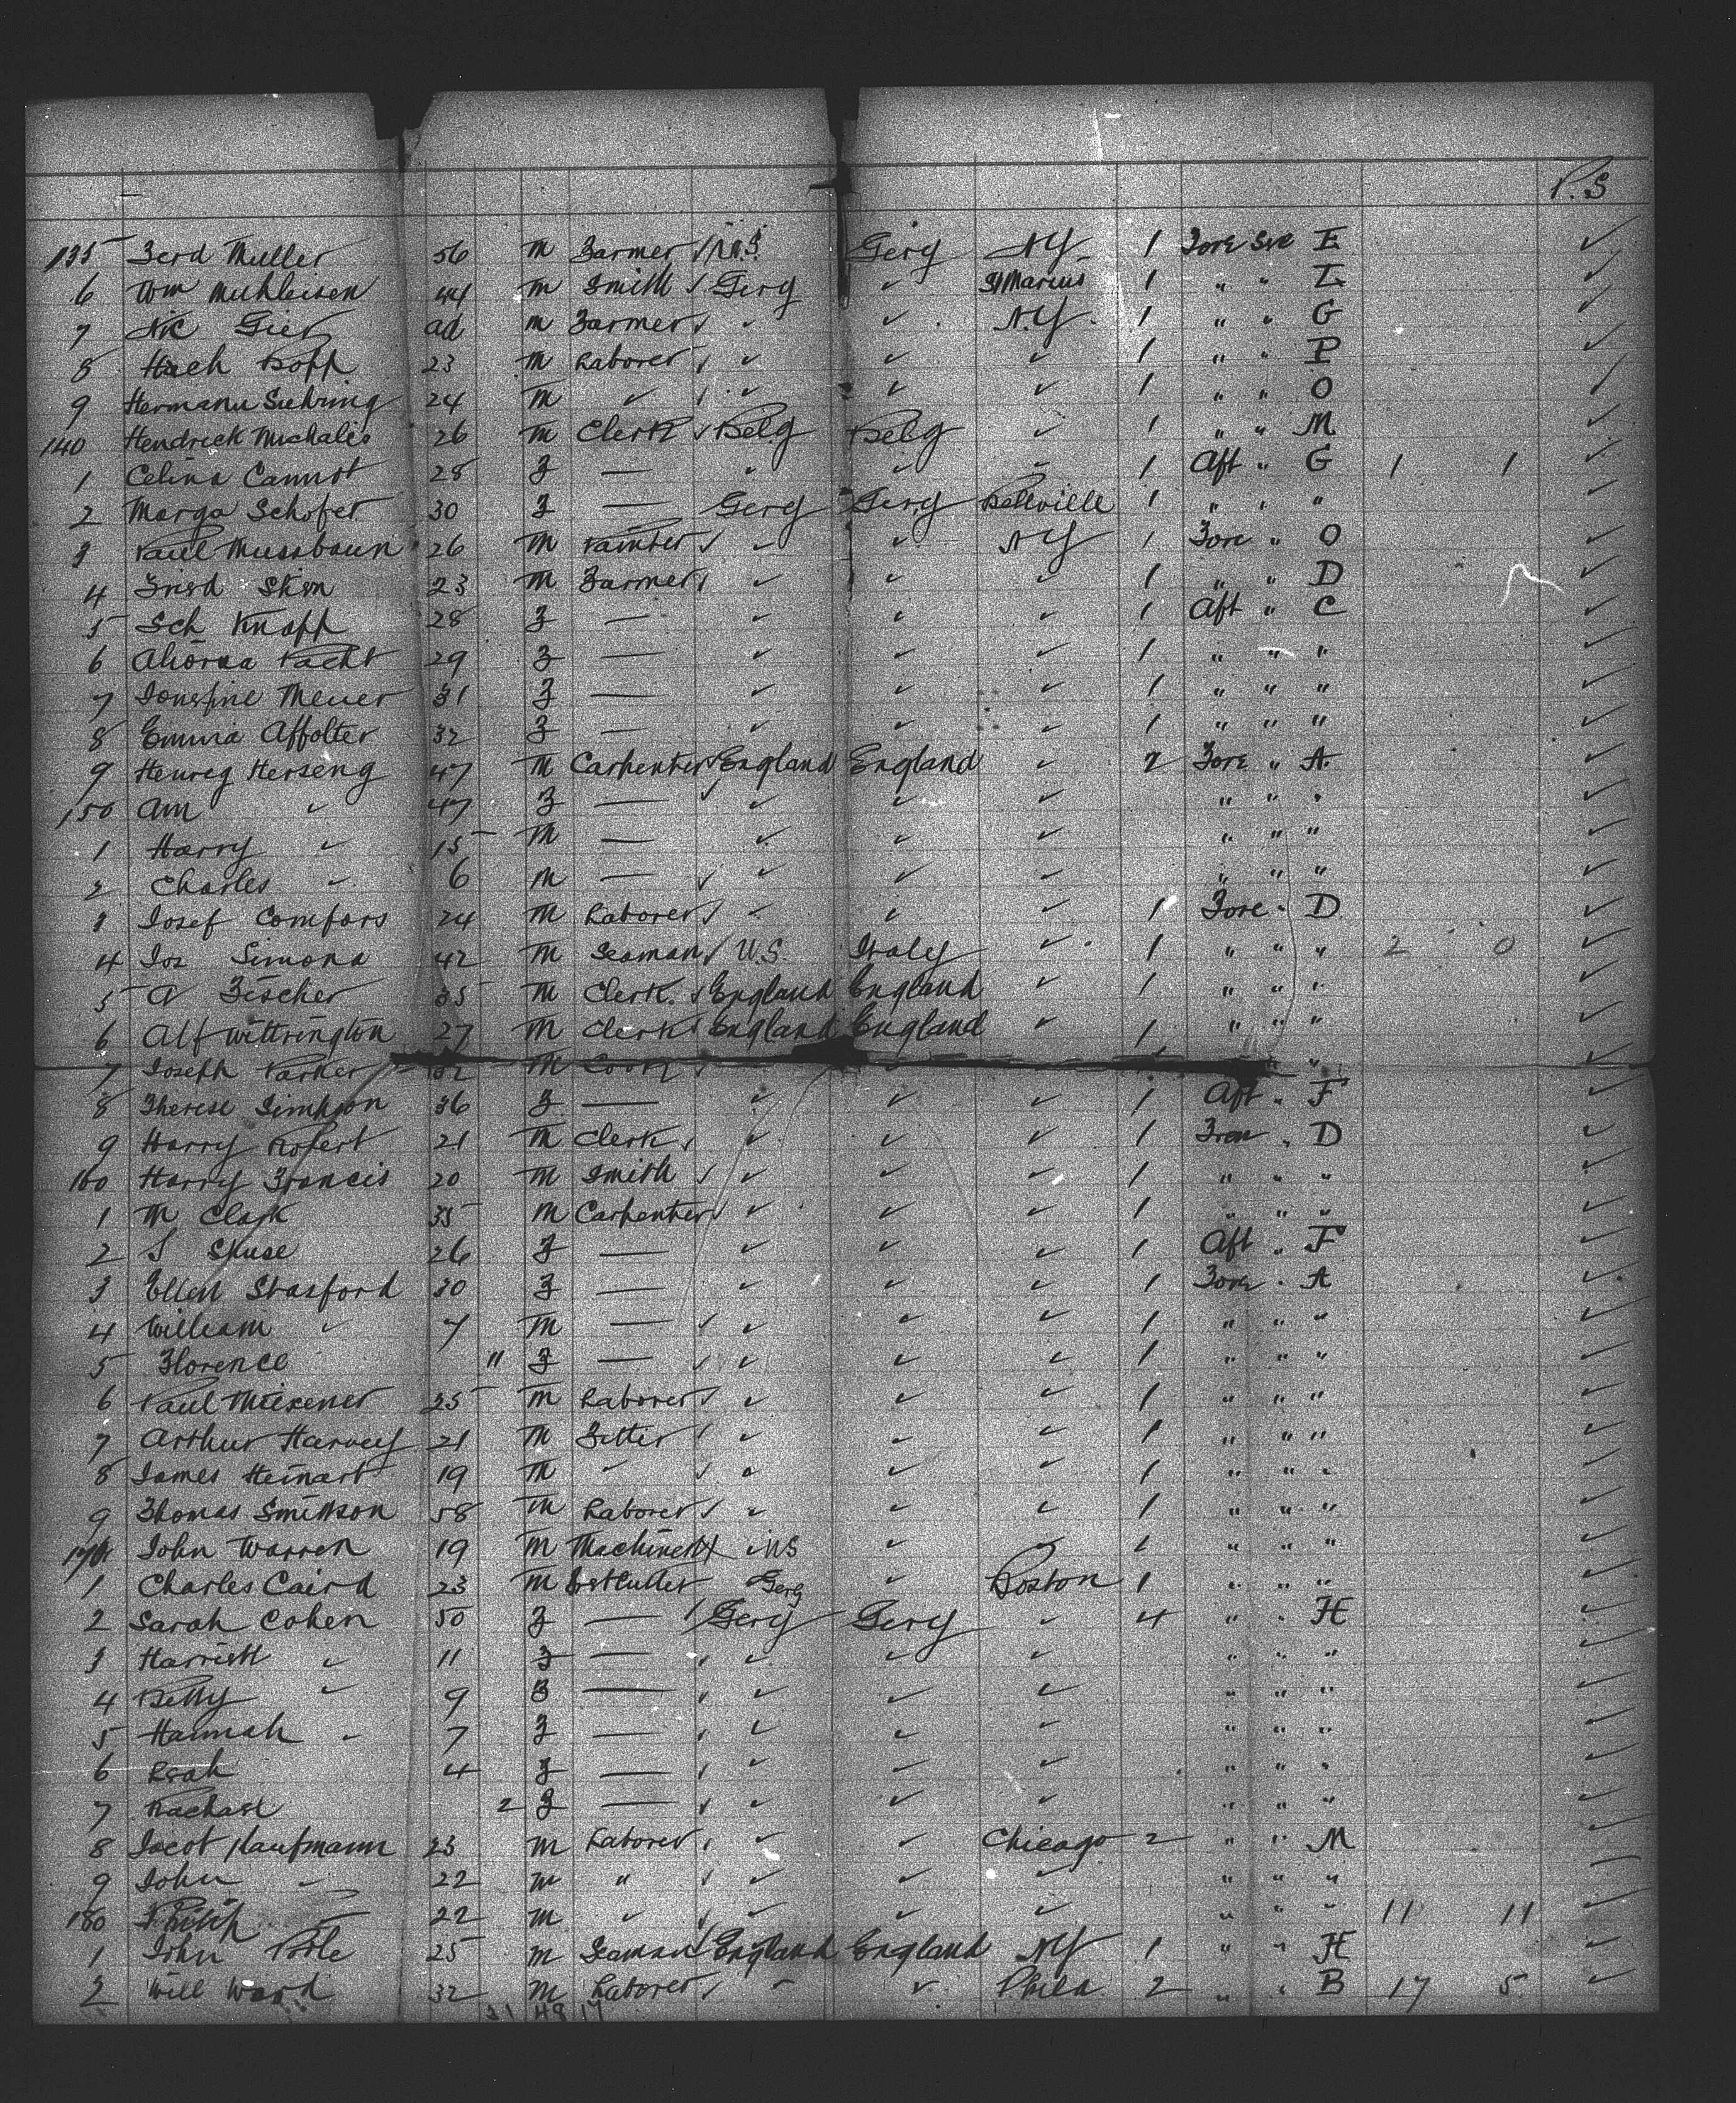 P.S
135 Ferd Muller 56 m Farmer U.S. Gery NY 1 Fore Sve E
6 Wm Muhleisen 44 m Smith Gerg ✓ St Marius 1 " " L
7 Nic Gier ad m Farmer ✓ ✓ N.Y. 1 " " G
8 Hach Kopp 23 m Laborer ✓ ✓ ✓ 1 " " P
9 Hermann Suhring 24 m ✓ ✓ ✓ ✓ 1 " " O
140 Hendrick Michalis 26 m Clerk Belg Belg ✓ 1 " " M
1 Celina Cannot 28 F — ✓ ✓ ✓ 1 Aft " G 1 1
2 Marga Schofer 30 F — Gerg Gerg Bellville 1 " " "
3 Paul Mussbaun 26 m Painter ✓ ✓ NY 1 Fore " O
4 Fried 23 m Farmer ✓ ✓ ✓ 1 " " D
5 Sch Knopp 28 F — ✓ ✓ ✓ 1 Aft " C
6 Pacht 29 F — ✓ ✓ ✓ 1 " " "
7 Meuer 31 F — ✓ ✓ ✓ 1 " " "
8 Emma Affolter 32 F — ✓ ✓ ✓ 1 " " "
9 Henreg Herseng 47 m Carpenter England England ✓ 2 Fore " A
150 Ann ✓ 47 F — ✓ ✓ ✓ " " "
1 Harry ✓ 15 m — ✓ ✓ ✓ " " "
2 Charles ✓ 6 m — ✓ ✓ ✓ " " "
3 Josef Comfors 24 m Laborer ✓ ✓ ✓ 1 Fore " D
4 Jos Simona 42 m Seaman U.S. Italy ✓ 1 " " " 2 0
5 A Fischer 35 m Clerk. England England ✓ 1 " " "
6 Alf Wittrington 27 m Clerk England England ✓ 1 " " "
7 Joseph Parker 32 m Cook "
8 Therese Simpson 36 F — ✓ ✓ ✓ 1 Aft " F
9 Harry Robert 21 m Clerk ✓ ✓ ✓ 1 Fore " D
160 Harry Francis 20 m Smith ✓ ✓ ✓ 1 " " "
1 M Clark 35 m Carpenter ✓ ✓ ✓ 1 " " "
2 S Skuse 26 F — ✓ ✓ ✓ 1 Aft " F
3 Ellen Strasford 30 F — ✓ ✓ ✓ 1 Fore " A
4 William ✓ 7 m — ✓ ✓ ✓ 1 " " "
5 Florence 11 F — ✓ ✓ ✓ 1 " " "
6 Paul 25 m Laborer ✓ ✓ ✓ 1 " " "
7 Arthur Harvey 21 m Fitter ✓ ✓ ✓ 1 " " "
8 James Heinart 19 m ✓ ✓ ✓ ✓ 1 " " "
9 Thomas Smithson 58 m Laborer ✓ ✓ ✓ 1 " " "
170 John Warren 19 m Machinest US ✓ ✓ 1 " " "
1 Charles Caird 23 m Gerg ✓ Boston 1 " " "
2 Sarah Cohen 50 F — Gerg Gerg ✓ 4 " " H
3 Harriett ✓ 11 F — ✓ ✓ ✓ " " "
4 Betty ✓ 9 F — ✓ ✓ ✓ " " "
5 Hannah ✓ 7 F — ✓ ✓ ✓ " " "
6 Leah 4 F — ✓ ✓ ✓ " " "
7 Rachael 2 F — ✓ ✓ ✓ " " "
8 Jacob Kaufmann 23 m Laborer ✓ ✓ Chicago 2 " " M
9 John ✓ 22 m " ✓ ✓ ✓ " " "
180 22 m ✓ ✓ ✓ ✓ " " " 11 11
1 John Pole 25 m Seaman England England NY 1 " " H
2 Will Ward 32 m Laborer ✓ ✓ Phila 2 " " B 17 5
31 49 17